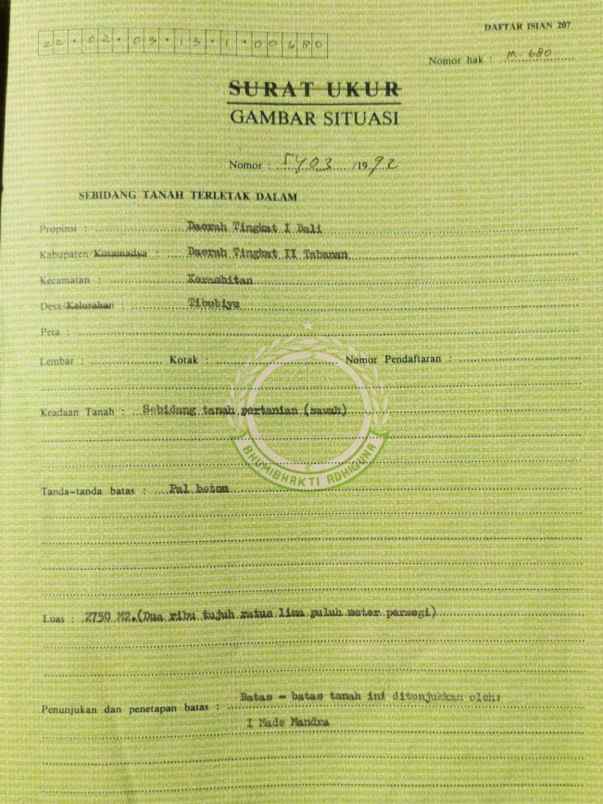 DAFTAR ISIAN 207
22.02.03.13.1.00680
Nomor hak : M. 680
SURAT UKUR
GAMBAR SITUASI
Nomor : 5403 /1992
SEBIDANG TANAH TERLETAK DALAM
Propinsi : Daerah Tingkat I Bali
Kabupaten Kotamadya : Daerah Tingkat II Tabanan
Kecamatan : Kerambitan
Desa Kelurahan : Tibubiyu
Peta :
Lembar : Kotak : Nomor Pendaftaran :
Keadaan Tanah : Sebidang tanah pertanian (sawah)
BHUMIBHAKTI ADHIGUNA
Tanda-tanda batas : Pal beton
Luas : 2750 M2.(Dua ribu tujuh ratus lima puluh meter persegi)
Penunjukan dan penetapan batas : Batas - batas tanah ini ditunjukkan oleh:
I Made Mandra